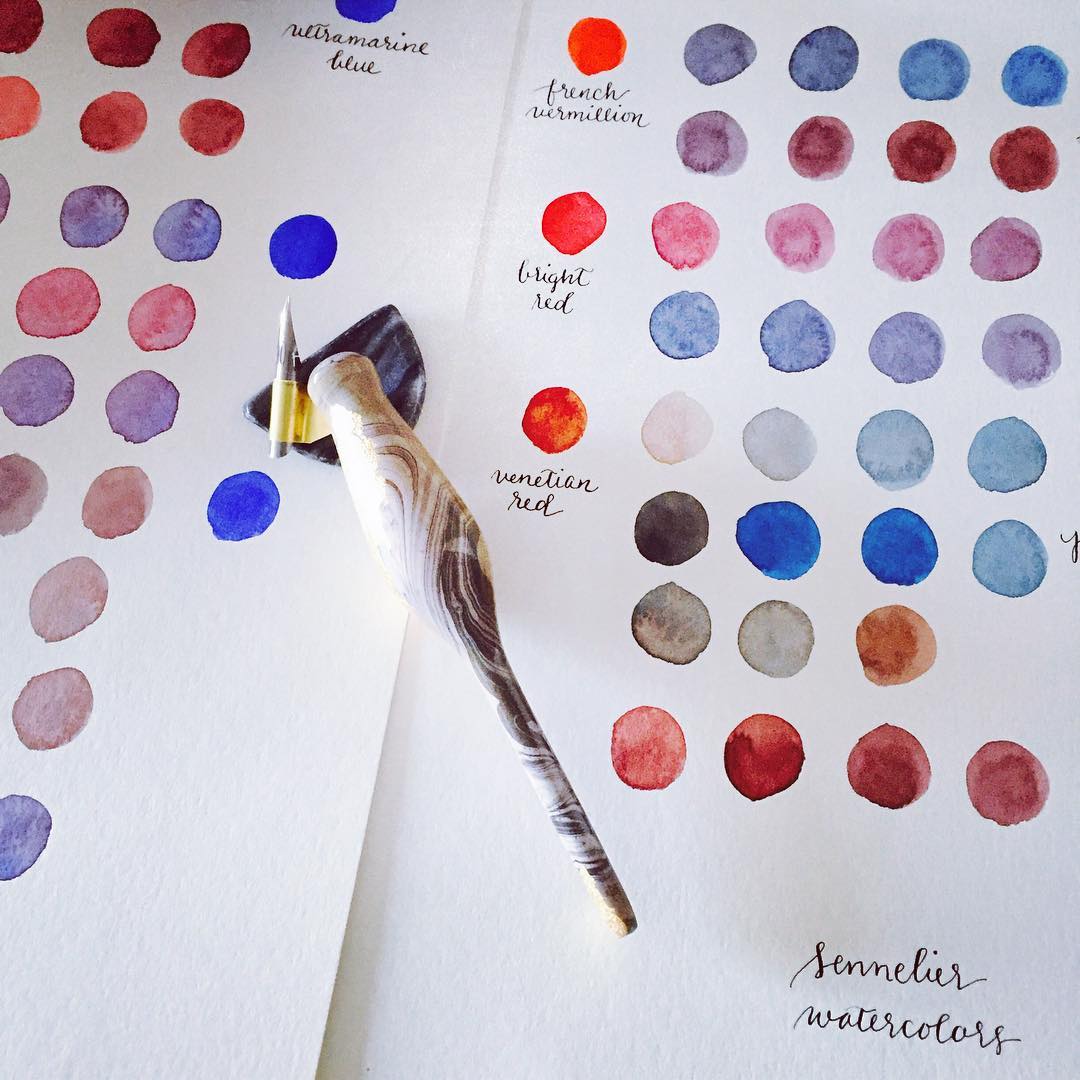 ultramarine
blue
french
vermillion
bright
red
venetian
red
sennelier
watercolors